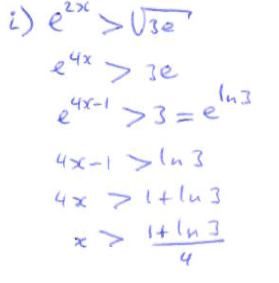 i) e^{2x} > √3e
e^{4x} > 3e
e^{4x-1} > 3 = e^{ln 3}
4x-1 > ln 3
4x > 1 + ln 3
x > \frac{1 + ln 3}{4}